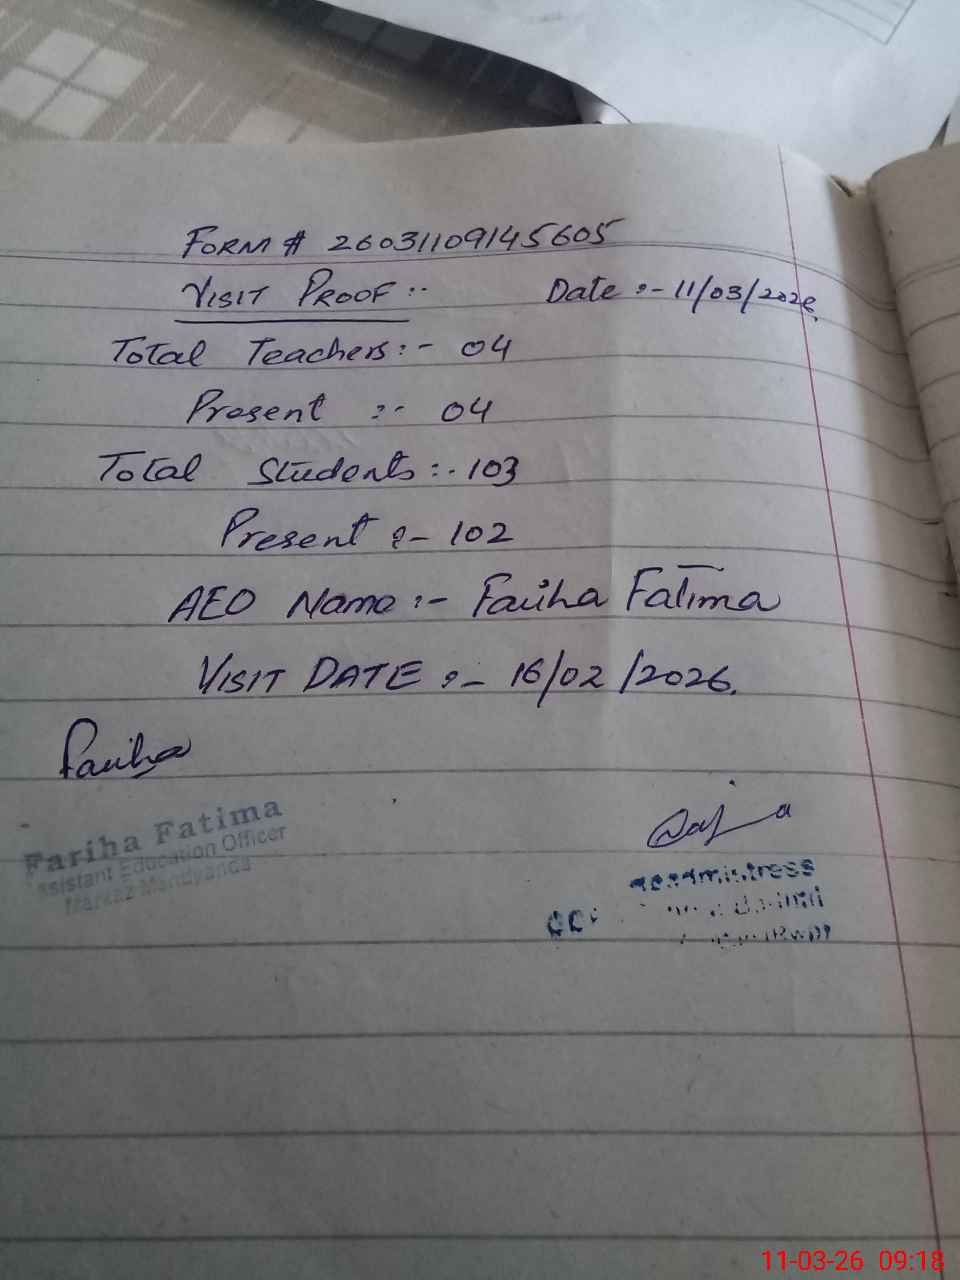 FORM # 26031109145605
VISIT PROOF :- Date :- 11/03/2026.
Total Teachers :- 04
Present :- 04
Total Students :- 103
Present :- 102
AEO Name :- Fariha Fatima
VISIT DATE :- 16/02/2026.
Fariha
Fariha Fatima
Assistant Education Officer
Markaz Mandyanda
Headmistress
11-03-26 09:18